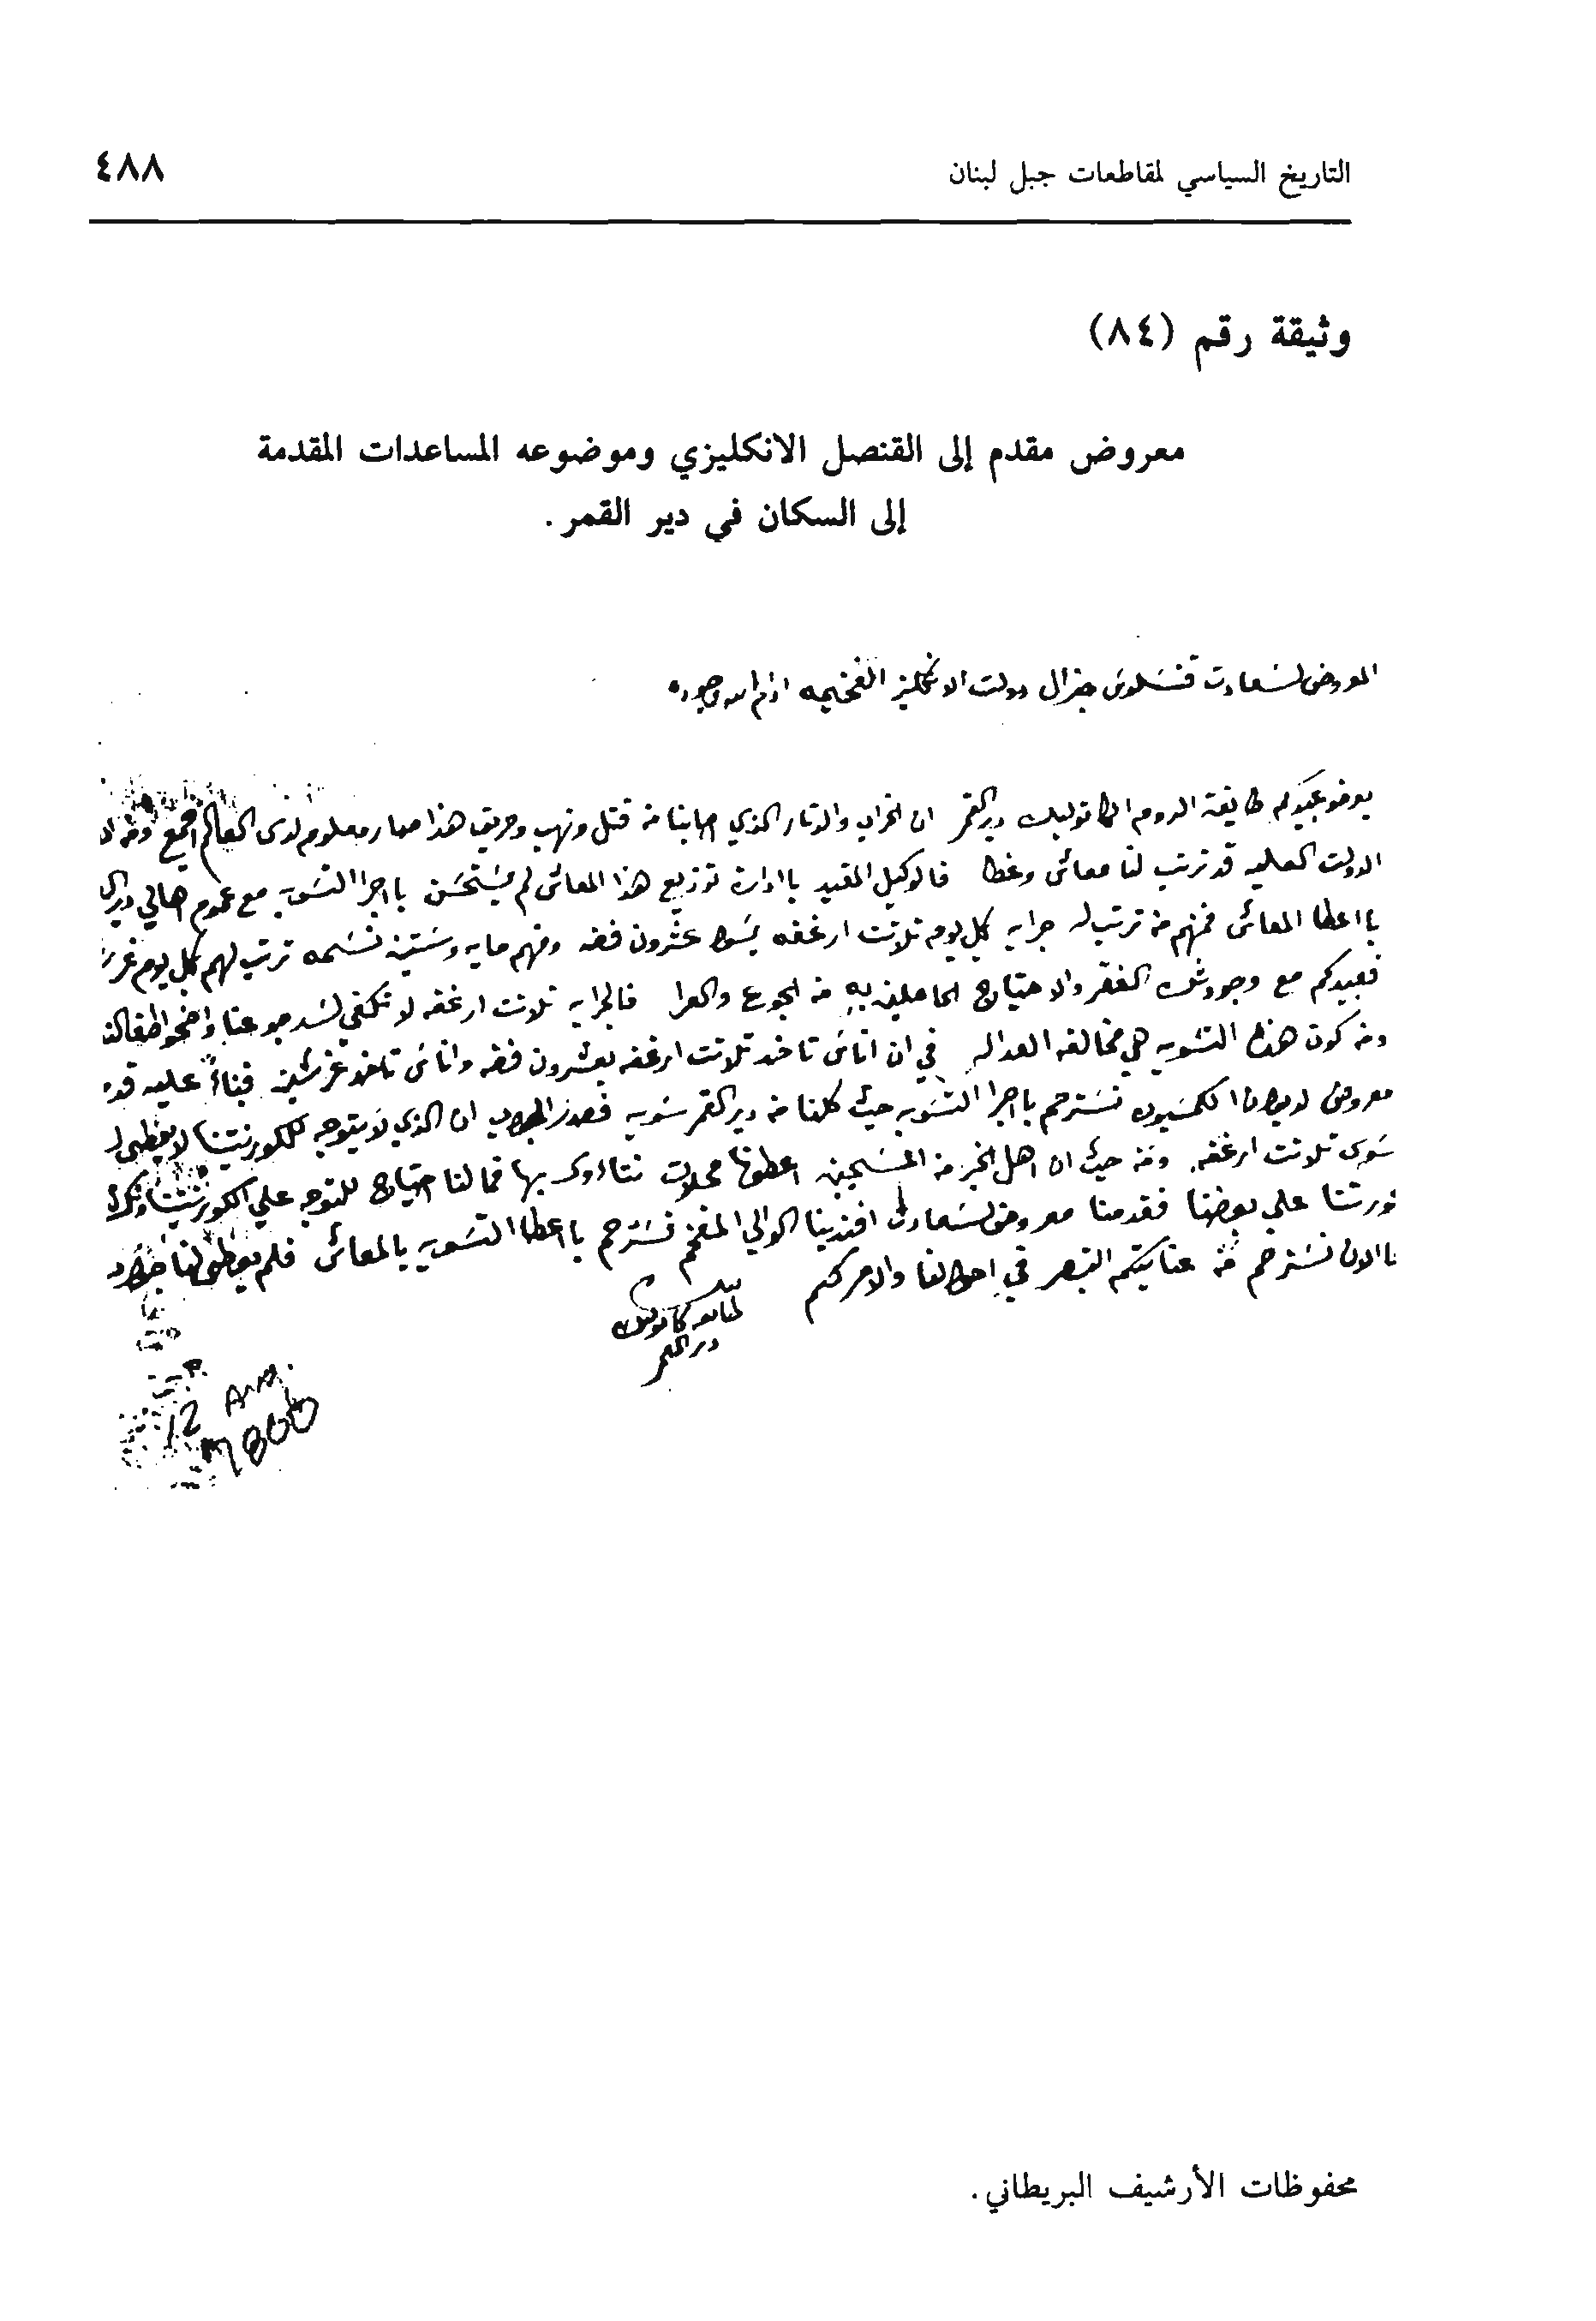 التاريخ السياسي لمقاطعات جبل لبنان
٤٨٨
وثيقة رقم (٨٤)
معروض مقدم إلى القنصل الانكليزي وموضوعه المساعدات المقدمة
إلى السكان في دير القمر .
المعروض لسعادت قنسلوس جنرال دولت الانكليز الفخيمه ادام الله وجوده
يعرضو عبيدكم طايفة الروم الكاتوليك ديرالقمر ان الخراب والدتار الذي اصابنا من قتل ونهب وحريق هذا صار معلوم لدى العالم اجمع ومن
الدولت العليه قد ترتب لنا معاش وغطا فالوكيل المقيد باادارة توزيع هذا المعاش لم يستحسن بااجرا التسويه مع عموم اهالي
بااعطا المعاش فمنهم من ترتب له جرايه كل يوم تلاتت ارغفه يسوا عشرون فضه ومنهم مايه وستين نسمه ترتب لهم كل يوم
فعبيدكم مع وجود الفقر والاحتياج الحاصلين به من الجوع والعرا فالجرايه تلاتت ارغفه لا تكفي لسد جوعنا
ومن كون هذه التسويه هي مخالفه العداله في ان اناس تاخد تلاتت ارغفه بعشرون فضه واناس تاخد غرشين فبناءً عليه
معروض لديوان الكمسيون نسترحم بااجرا التسويه حيث كلنا من ديرالقمر سويه فصدر الجواب ان الذي لا يتوجه للكورنتينا لا يعطى
سوى تلاتت ارغفه ومن حيث ان اهل الخير من المسيحيين اعطونا محلات نتاءوى بها فما لنا احتياج للتوجه علي الكورنتينا
علي بعضنا فقدمنا معروض لسعادت افندينا الوالي المفخم نسترحم بااعطا التسويه بالمعاش فلم يعطى لنا
الان نسترحم من عنايتكم التبصر في احوالنا والامر لكم
طايفة كاتوليك
دير القمر
12
1860
محفوظات الأرشيف البريطاني .